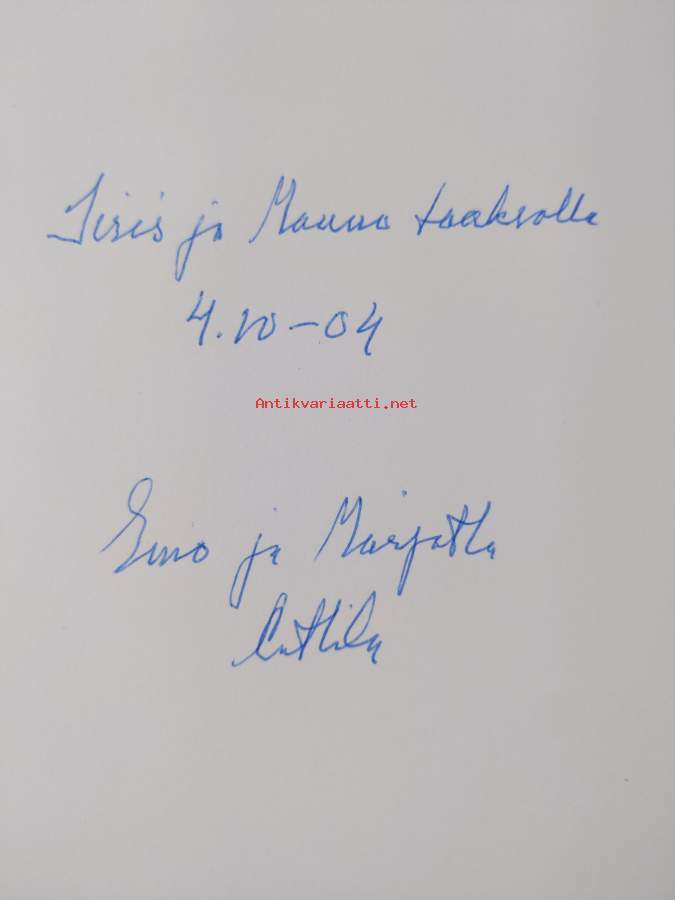 Iiris ja Mauno Laaksolle
4.10-04
Antikvariaatti.net
Eino ja Marjatta